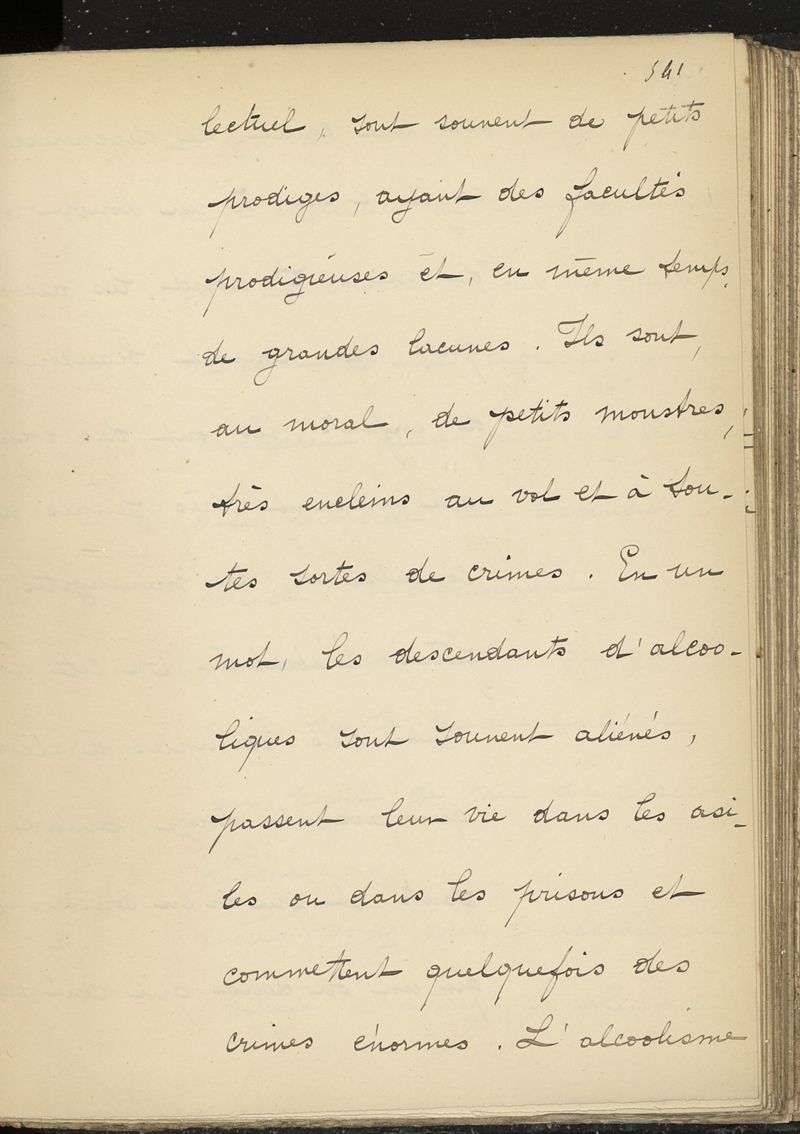 541
lectuel, sont souvent de petits
prodiges, ayant des facultés
prodigieuses et, en même temps,
de grandes lacunes. Ils sont,
au moral, de petits monstres,
très encleins au vol et à tou-
tes sortes de crimes. En un
mot, les descendants d'alcoo-
liques sont souvent aliénés,
passent leur vie dans les asi-
les ou dans les prisons et
commettent quelquefois des
crimes énormes. L'alcoolisme